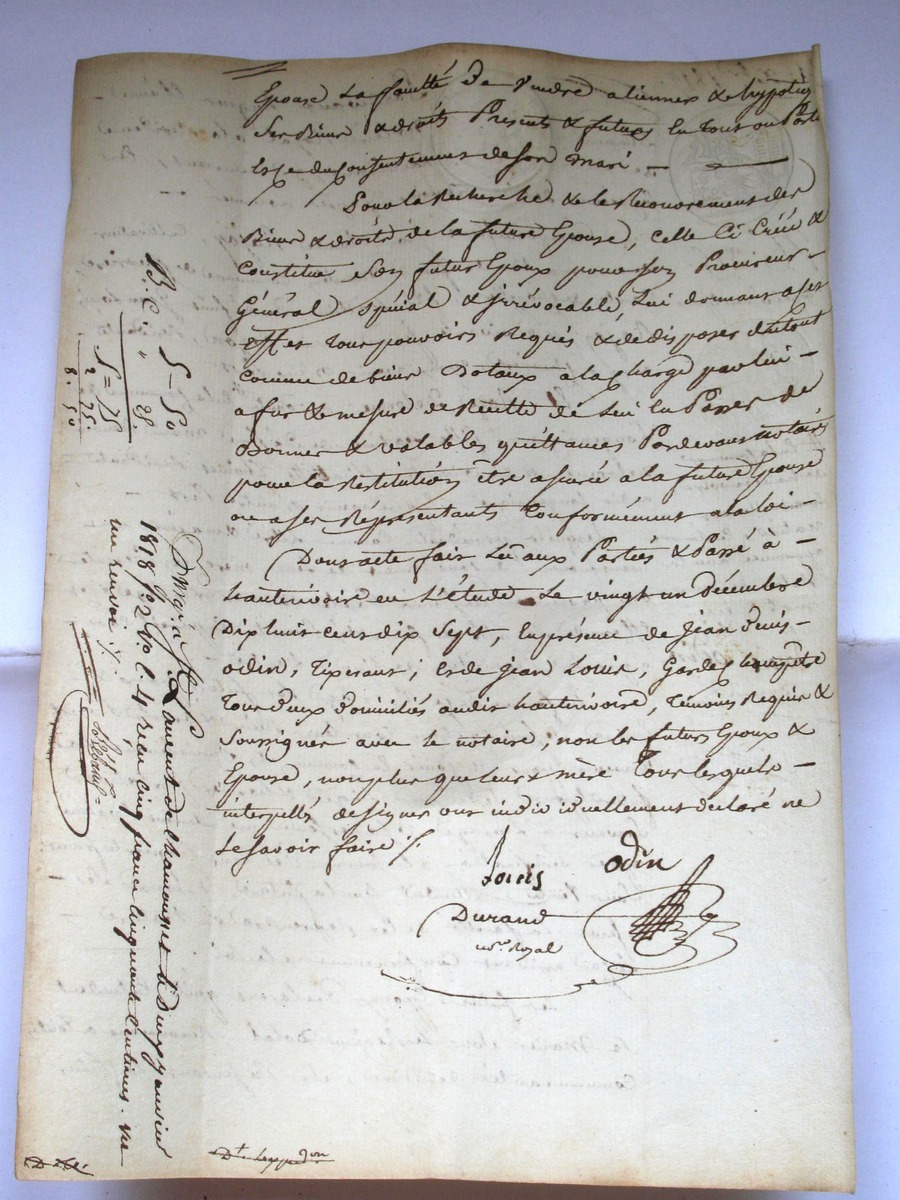 Epouse la faculté de vendre aliénner & hypotéq
ses Biens & droits Présents & futurs En tout ou Partie
Et ce du Consentement de son mari —
Pour la Recherche & le Recouvrement des
Biens & droits de la future Epouse, celle Ci Créé &
Constitue son futur Epoux pour son Procureur
Général spécial & irrévocable, Lui donnant a ces
effet tous pouvoirs Requis & de disposer du tout
Comme de biens Dotaux a la Charge par lui —
a fur & mesure de Recette de lui En Passer de
Bonnes & valables quittances Pardevant notaires
pour la Restitution être assurée a la future Epouse
ou a ses Réprésentants Conformément a la loi —
Dont acte fait Lû aux Parties & Passé à —
hauterivoire en L'étude Le vingt un décembre
Dix huit cent dix Sept, En présence de jean Denis
odin, Tixerant; et de jean Louis, Garde champêtre
Tous Deux Domiciliés audit hauterivoire, Témoins Requis &
Soussignés avec le notaire, non les futurs Epoux &
Epouse, non plus que leurs mère Tous lesquels —
interpellés de signer ont individuellement déclaré ne
le savoir faire ./.
Louis Odin
Durand
nore. Royal
5 - 50
B. C. " 25.
5 = 75
2. 75.
8. 50
Enregé. à St. Laurent de Chamousset le Deux janvier
1818 fo. 2 Vo. C. 4 reçu cinq francs cinquante Centimes. vu
un renvoi ./.
Dt. Lexpedon